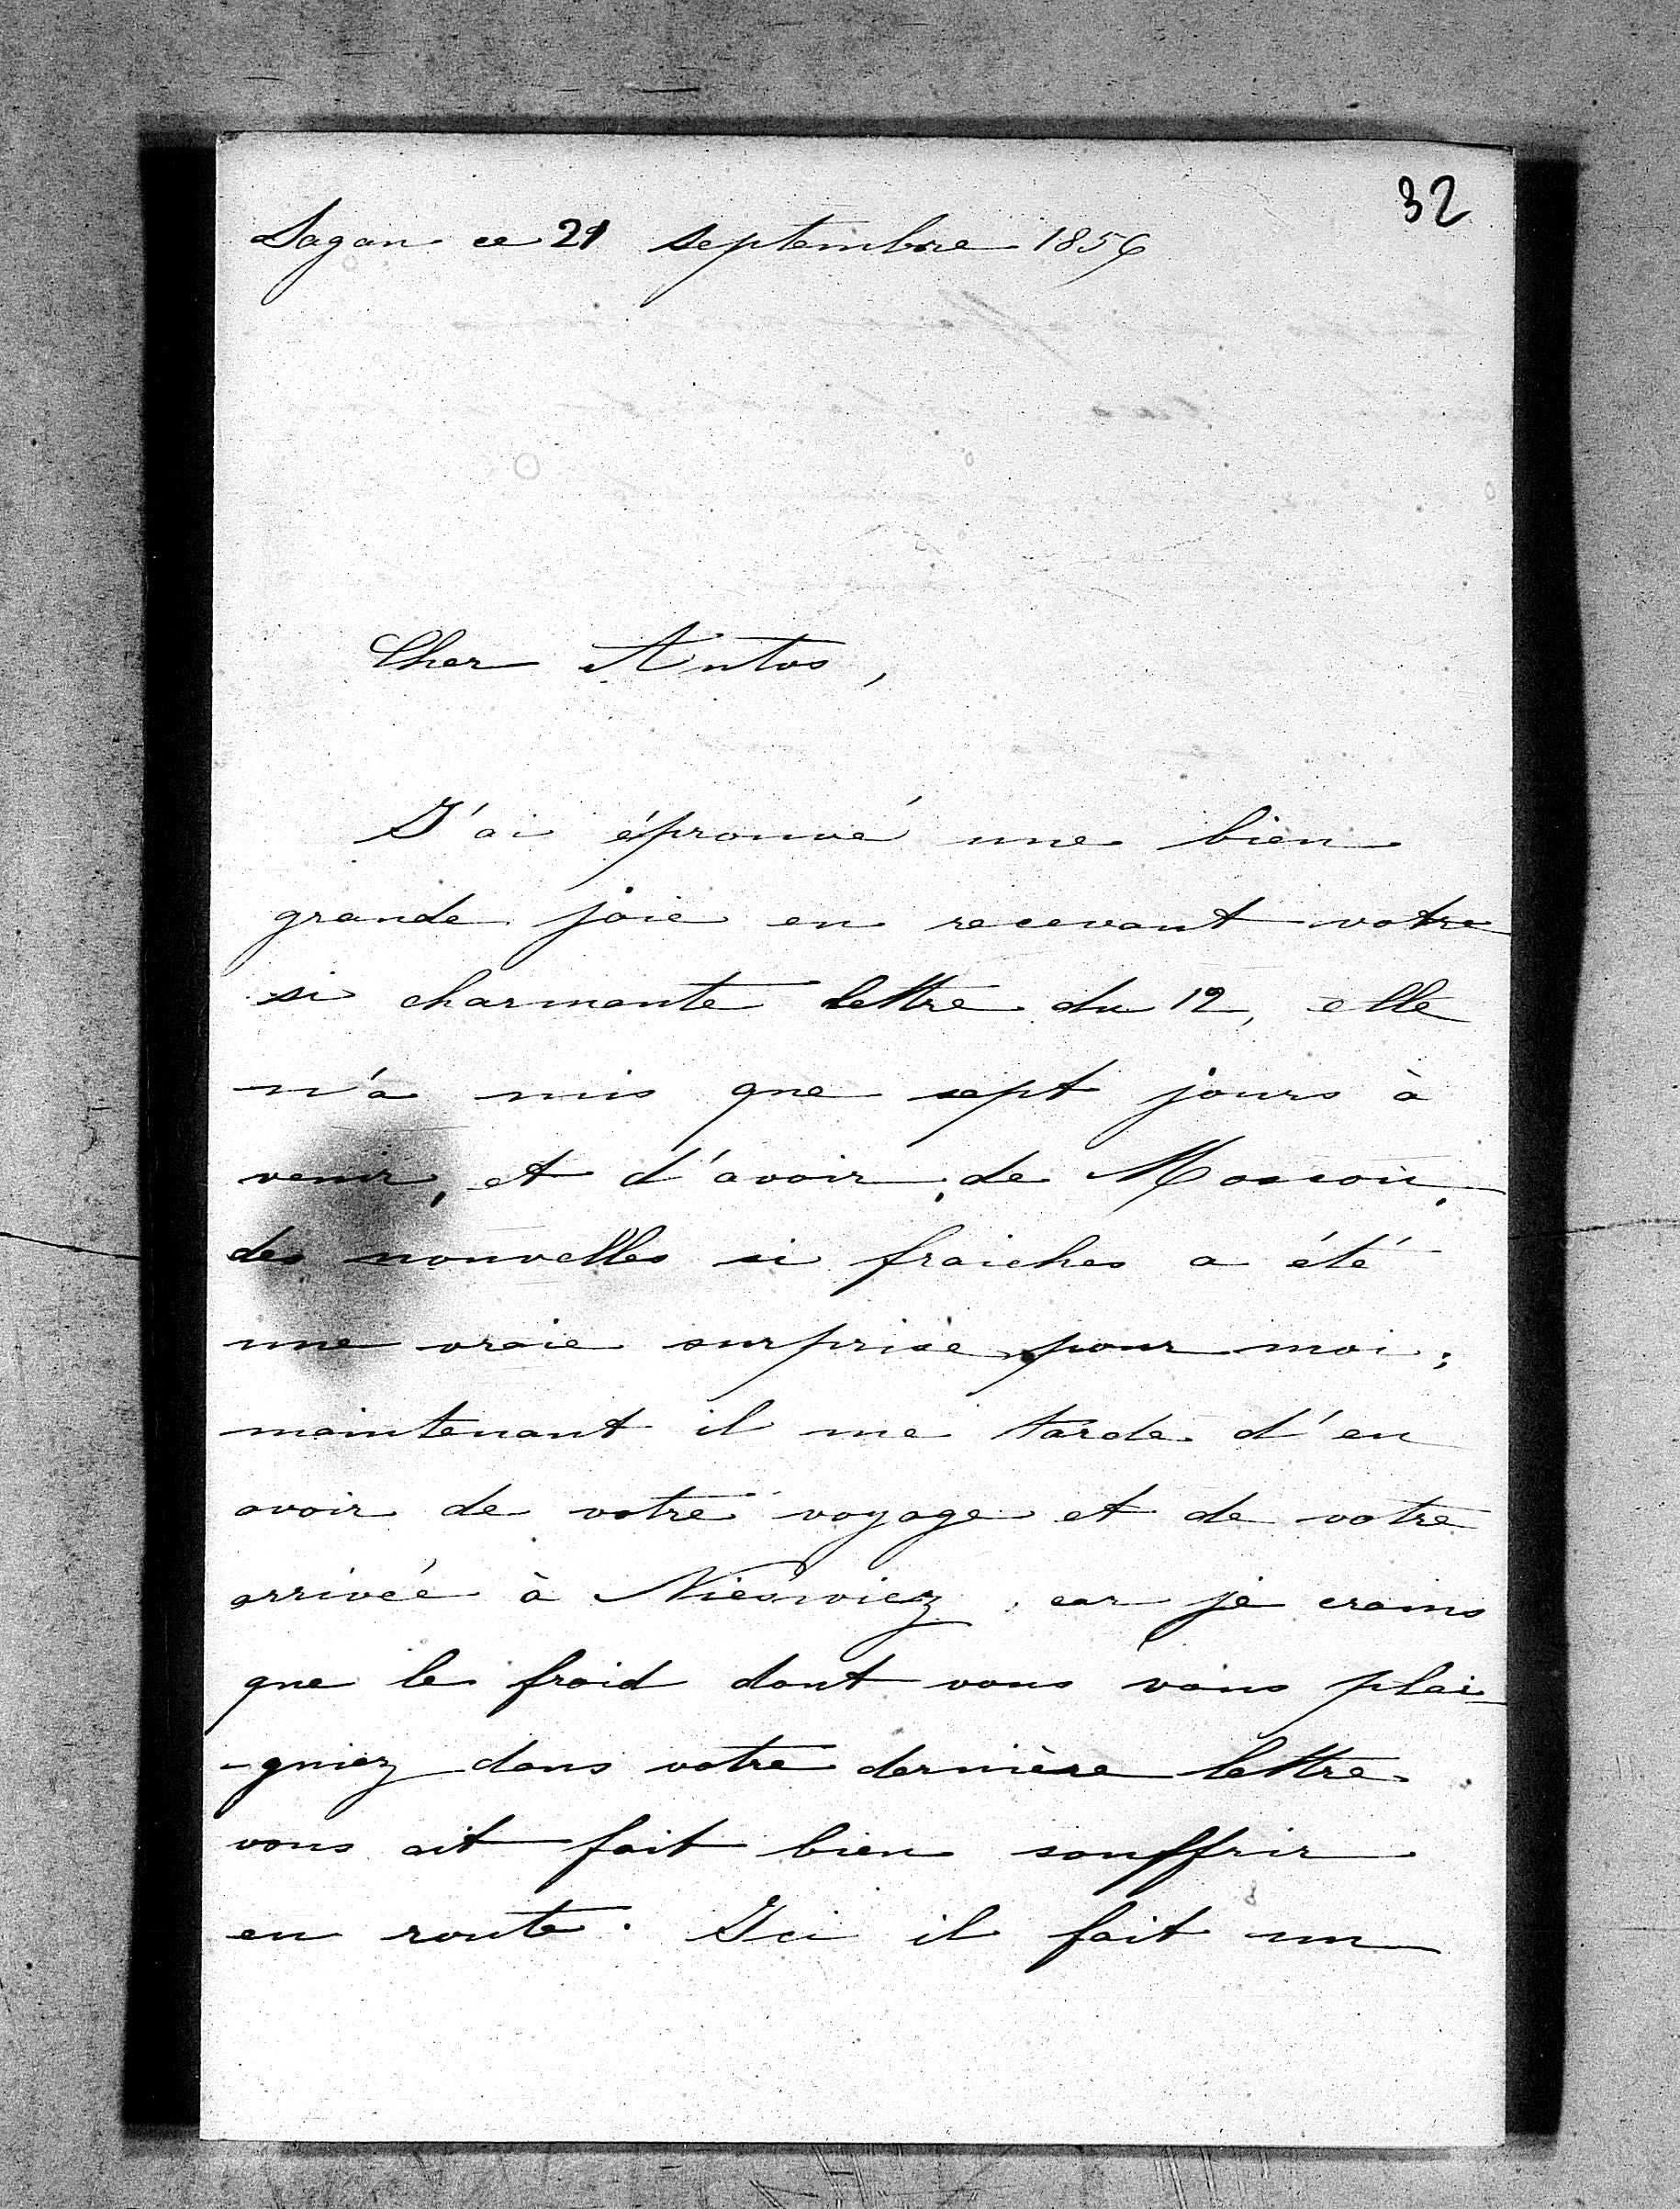 32
Sagan ce 21 septembre 1856
Cher Antos,
J'ai éprouvé une bien
grande joie en recevant votre
si charmante lettre du 12, elle
n'a mis que sept jours à
venir, et d'avoir, de Moscou,
des nouvelles si fraiches a été
une vraie surprise pour moi;
maintenant il me tarde d'en
avoir de votre voyage et de votre
arrivée à Nieświcz, car je crains
que le froid dont vous vous plai-
-gniez dans votre dernière lettre
vous ait fait bien souffrir
en route. Ici il fait un